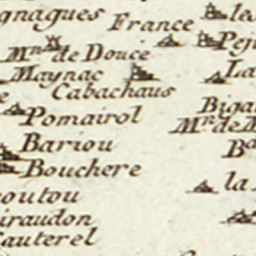 gnagues
France
les
Mn de Douce
Pej
Maynac
La
Cabachaus
Pomairol
Biga
Mn de
Bariou
Ba
Bouchere
la
outou
iraudon
auterel